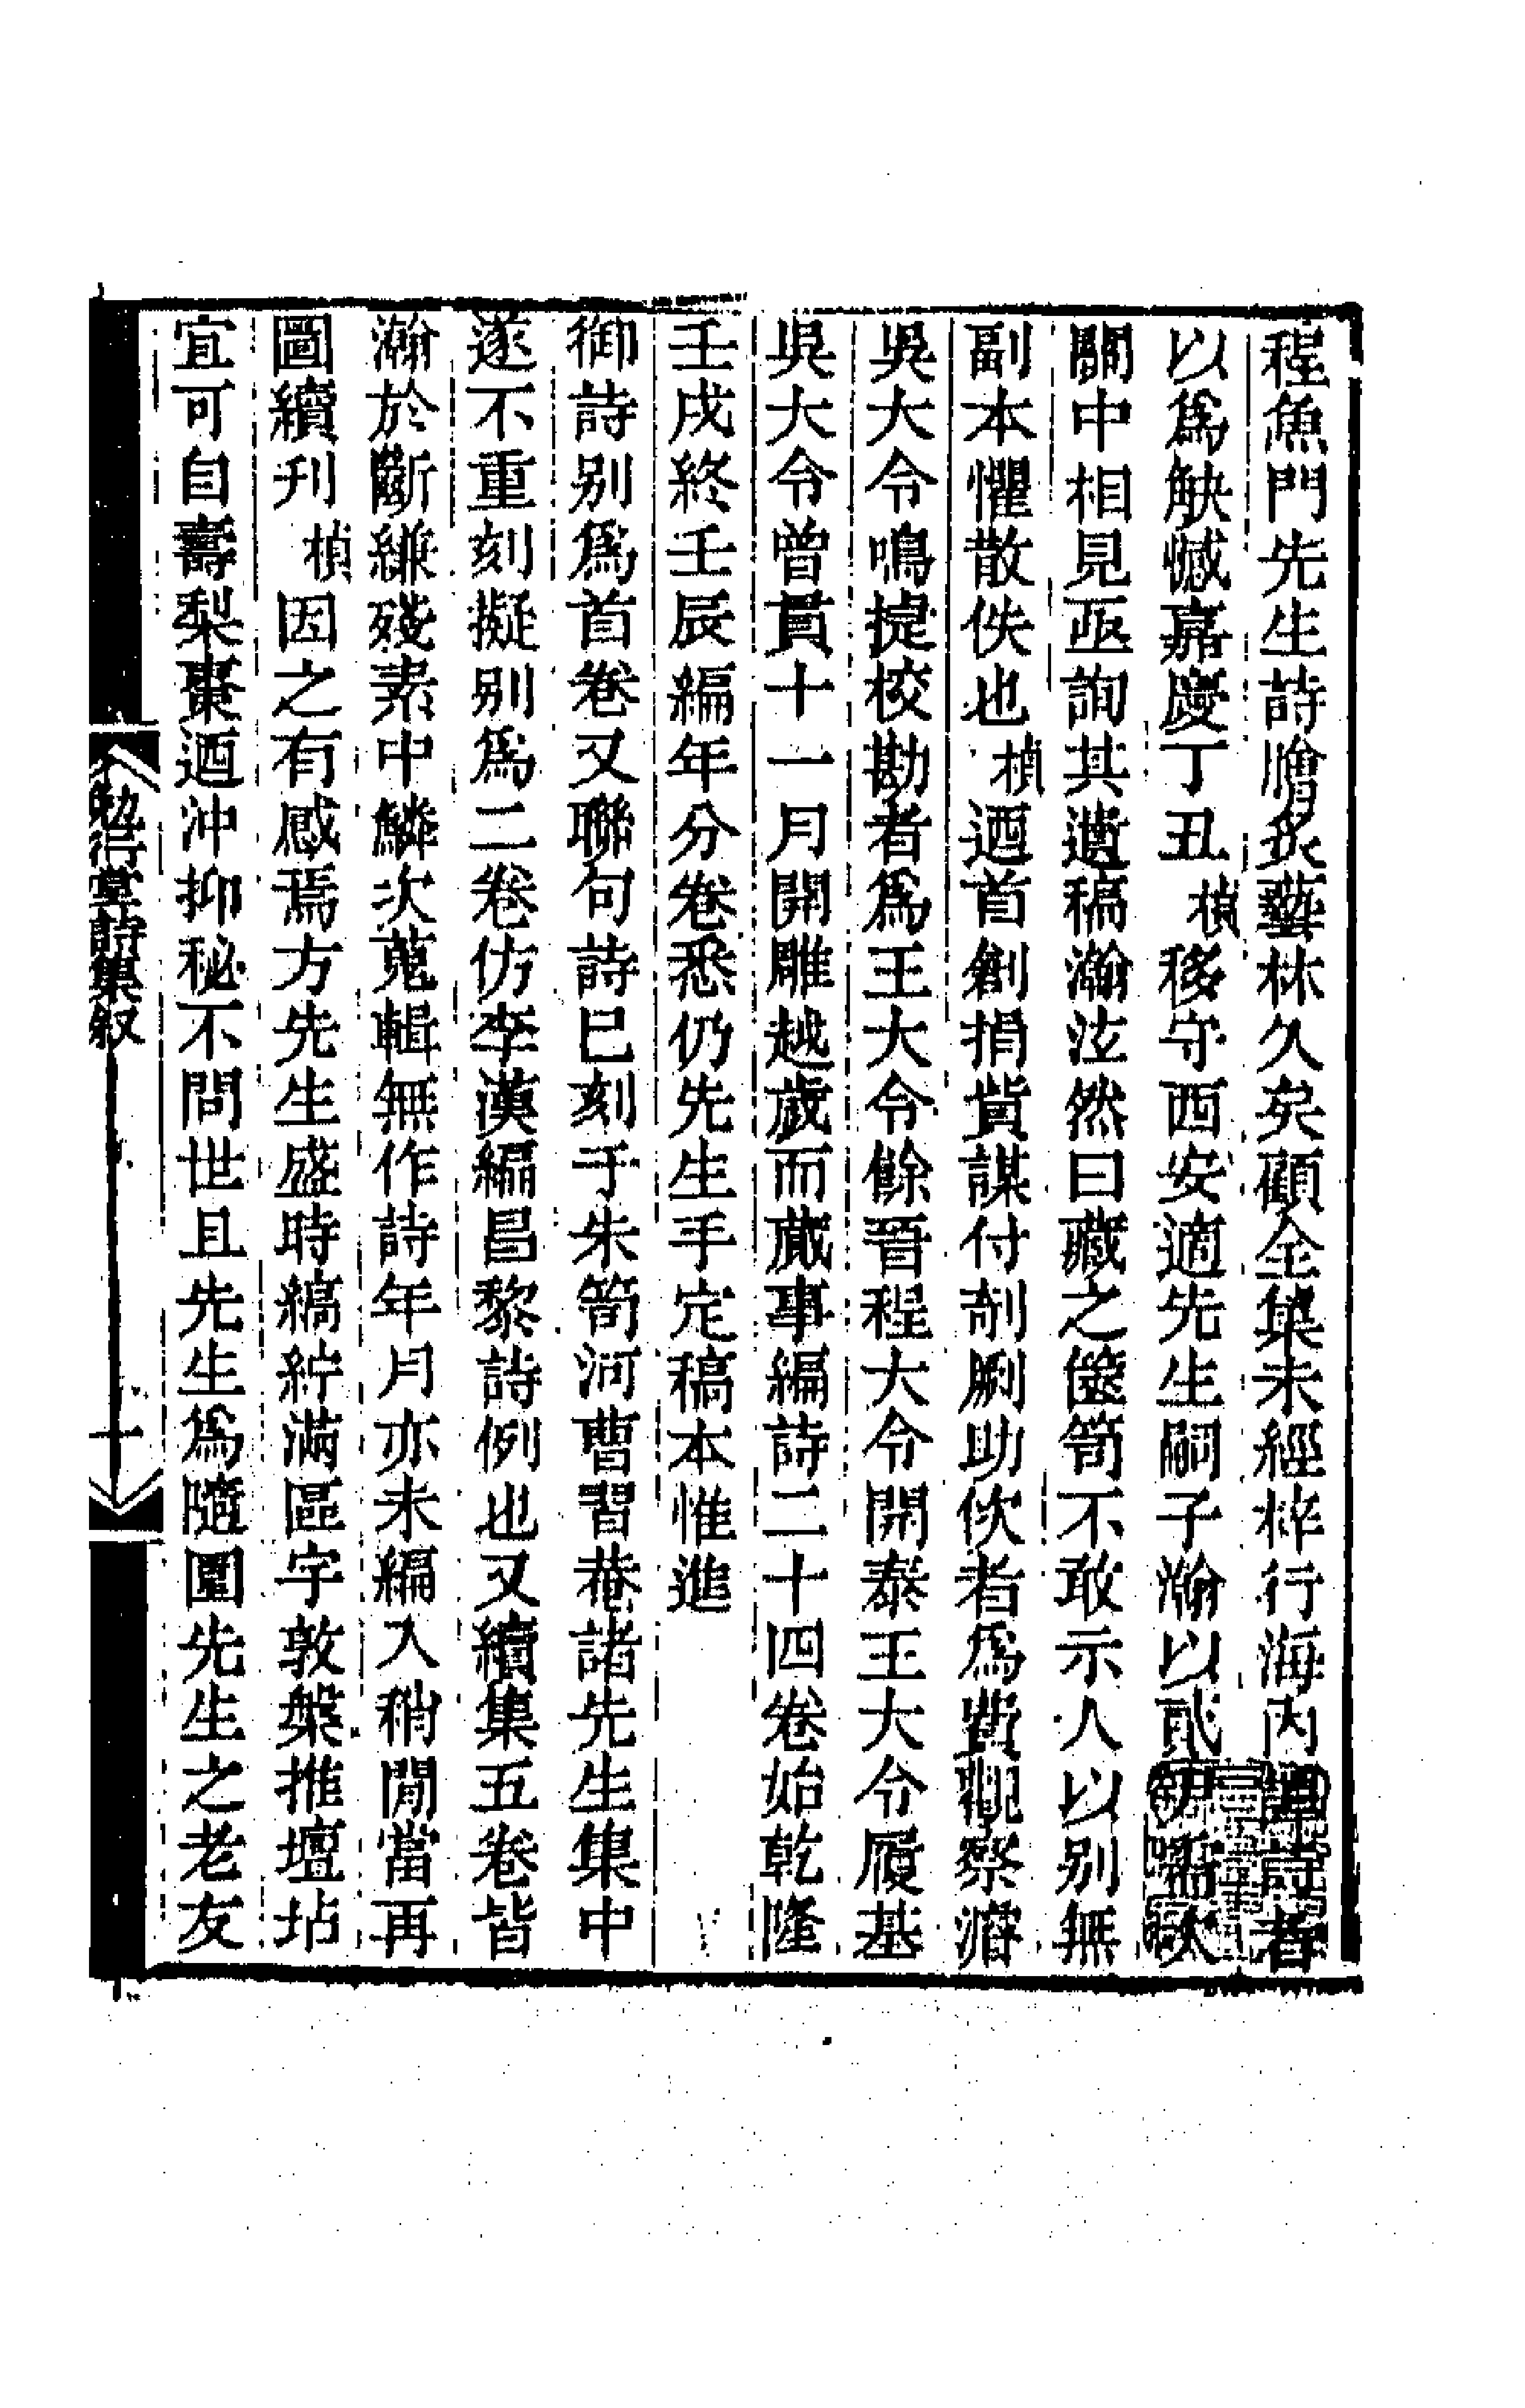 程魚門先生詩膾炙藝林久矣顧全集未經梓行海內譚詩者
以爲觖憾嘉慶丁丑楨移守西安適先生嗣子瀚以貳尹需次
關中相見亟詢其遺稿瀚泫然曰藏之篋笥不敢示人以別無
副本懼散佚也楨迺首創捐貲謀付剞劂助佽者爲費觀察濬
吳大令鳴捷校勘者爲王大令餘晉程大令開泰王大令履基
吳大令曾貫十一月開雕越歲而蕆事編詩二十四卷始乾隆
壬戌終壬辰編年分卷悉仍先生手定稿本惟進
御詩別爲首卷又聯句詩已刻于朱笥河曹習菴諸先生集中
遂不重刻擬別爲二卷仿李漢編昌黎詩例也又續集五卷皆
瀚於斷縑殘素中鱗次蒐輯無作詩年月亦未編入稍閒當再
圖續刋楨因之有感焉方先生盛時縞紵滿區宇敦槃推壇坫
宜可自壽梨棗迺沖抑秘不問世且先生爲隨園先生之老友
勉行堂詩集叙 十